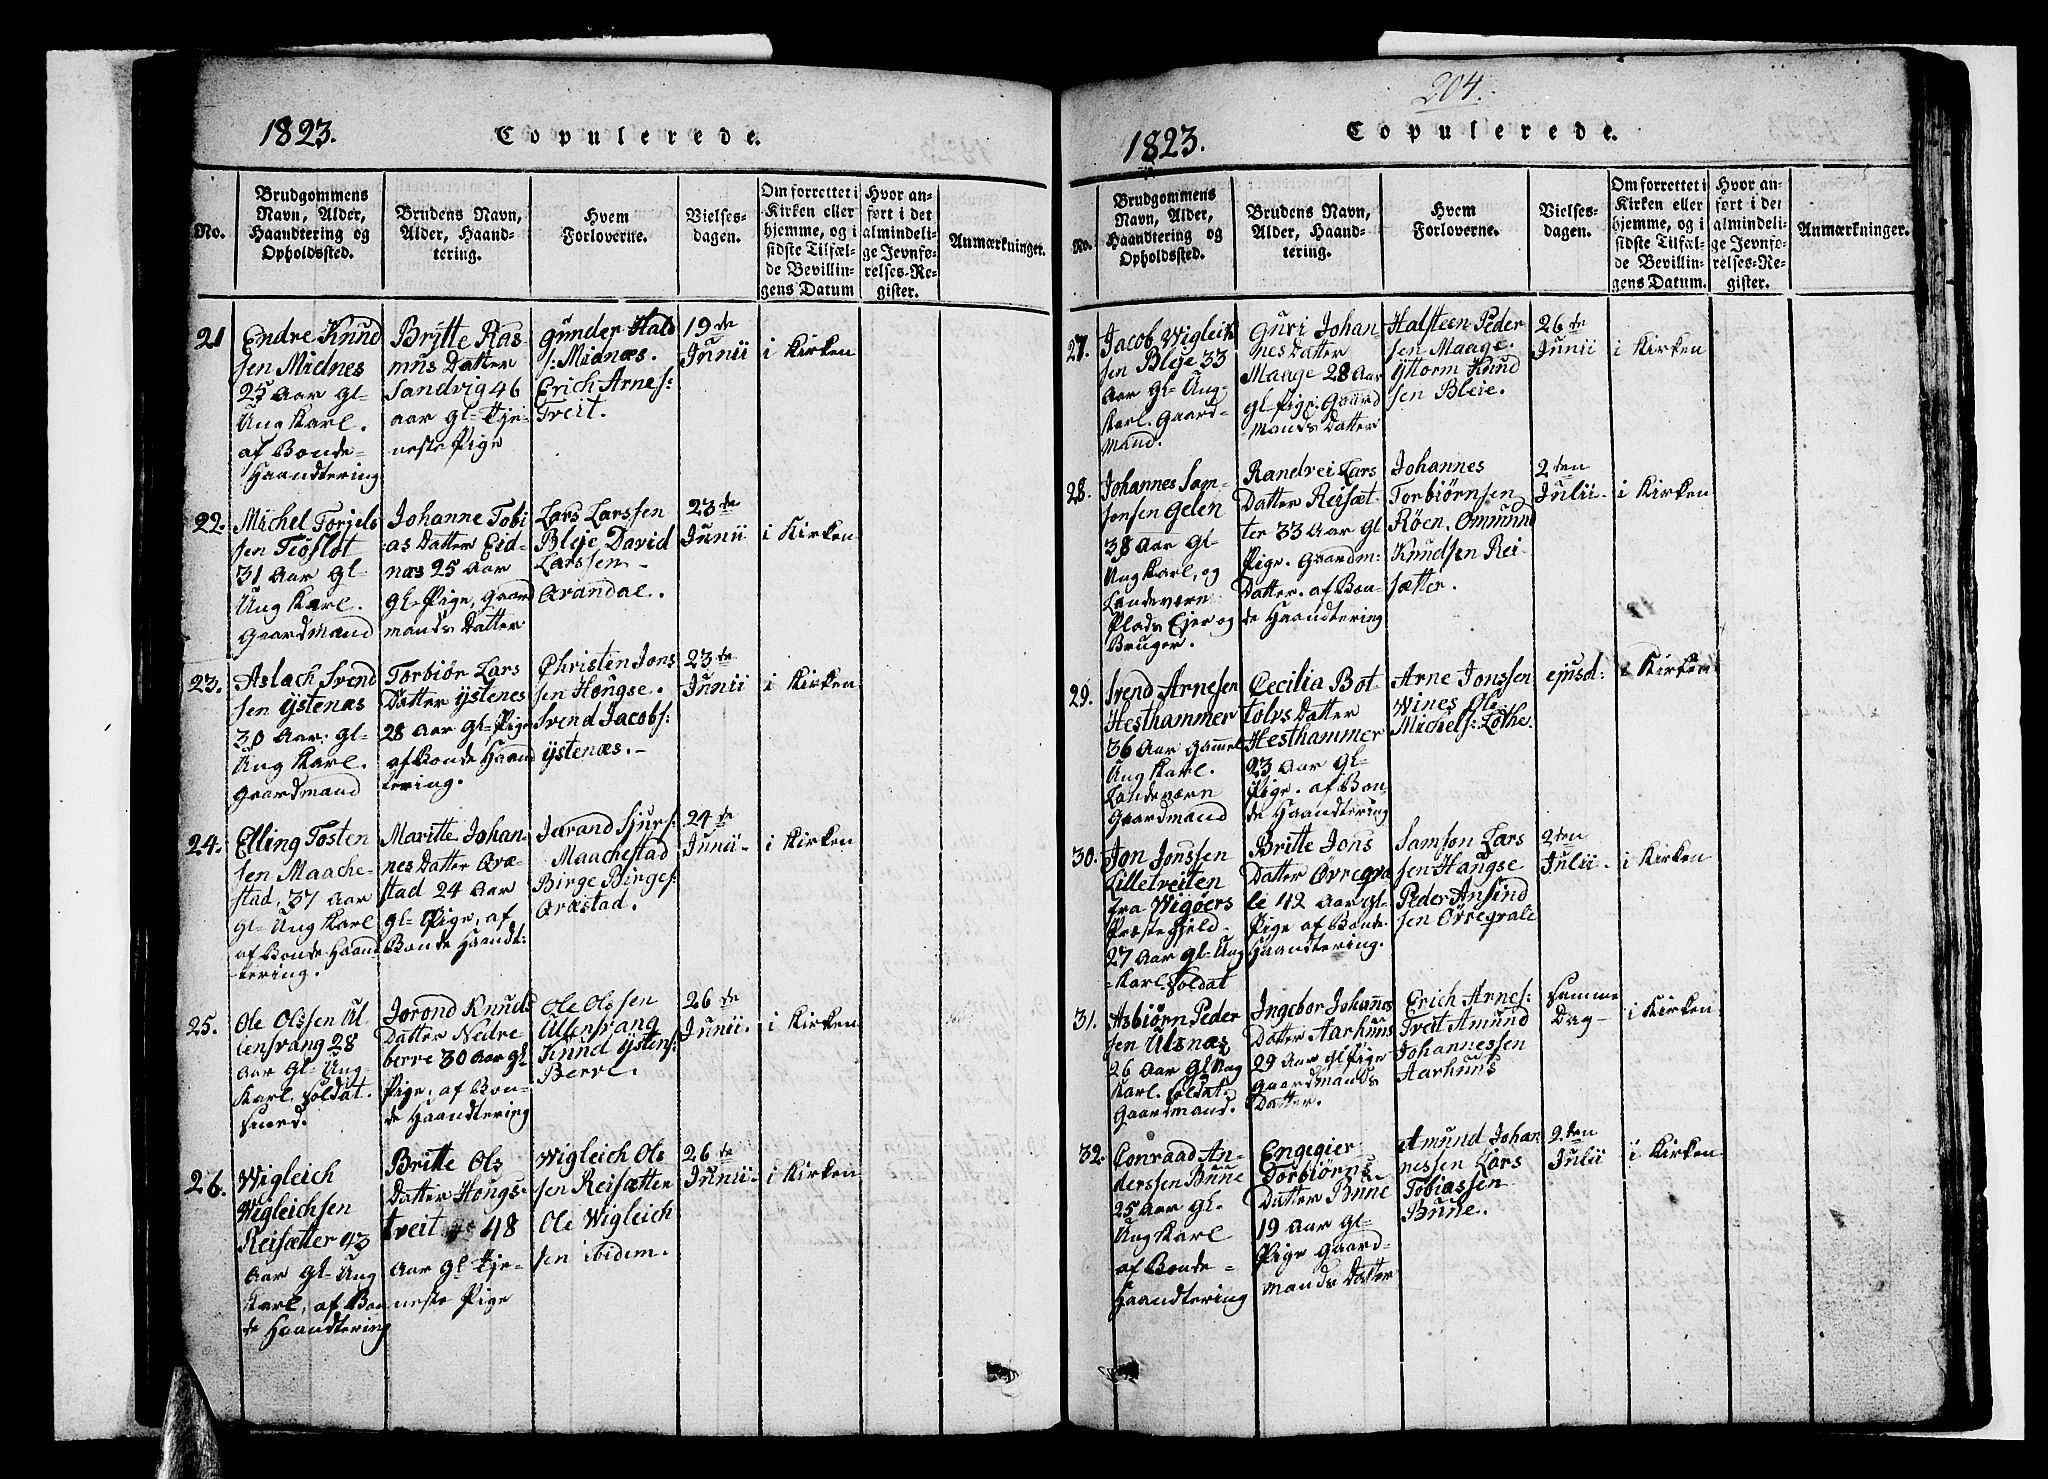 1823.
Copulerede.
No.
Brudgommens
Navn, Alder,
Haandtering og
Opholdssted.
Brudens Navn,
Alder, Haand-
tering.
Hvem
Forloverne.
Vielses-
dagen.
Om forrettet i
Kirken eller
hjemme, og i
sidste Tilfæl-
de Bevillin-
gens Datum
Hvor an-
ført i det
almindeli-
ge Jevnfø-
relses-Re-
gister.
Anmærkninger.
21
Endre Knud
sen Midnes
25 Aar Gl-
Ung Karl.
af Bonde-
Haandtering
Britte Ras
mus Datter
Sandvig 46
aar Gl- Tje-
neste Pige
Gunder Hald
s: Midnæs.
Erich Arnes:
Tveit.
19de
Junii
i Kirken
22.
Michel Torjels
sen Tiøflot
31 Aar Gl-
Ung Karl.
Gaardmand
Johanne Tobi
as Datter Eid-
næs 25 Aar
Gl- Pige, Gaard
mands Datter
Lars Larssen
Bleje David
Larssen-
Arandal.
23de
Junii
i Kirken
23.
Aslach Svend
sen Ystenæs
30 Aar. Gl-
Ung Karl.
Gaardmand
Torbiør Lars
Datter Ystenes
28 Aar Gl- Pige
af Bonde Haand
tering.
Christen Jons
sen Hougse.
Svend Jacobs:
Ystenæs.-
23de
Junii
i Kirken
24.
Elling Tosten
sen Maache-
stad, 37 Aar
Gl- Ung Karl
af Bonde Haand
tering.
Maritte Johan-
nes Datter Aræ-
stad 24 Aar
Gl- Pige, af
Bonde Haandt:
Jarand Sjurs:
Maachestad
Birge Birges:
Aræstad.
24de
Junii.
i Kirken
25.
Ole Olssen Ul
lensvang 28
Aar Gl- Ung-
Karl, Soldat.
Smed.
Jorond Knuds
Datter Nedre-
berre 30 Aar Gl
Pige, af Bon-
de Haandtering
Ole Olssen
Ullensvang
Knud Ystens:
Berre.
26de
Junii.
i Kirken
26.
Wigleich
Wigleichsen
Reisætter 43
Aar Gl- Ung
Karl, af Bon
de Haandtering
Britte Ols
Datter Hougs-
tveit 48
Aar Gl- Tje-
neste Pige
Wigleich Ols
sen Reisætter
Ole Wigleich
sen ibidem.
26de
Junii.
i Kirken
204.
1823.
Copulerede.
No.
Brudgommens
Navn, Alder,
Haandtering og
Opholdssted.
Brudens Navn,
Alder, Haand-
tering.
Hvem
Forloverne.
Vielses-
dagen.
Om forrettet i
Kirken eller
hjemme, og i
sidste Tilfæl-
de Bevillin-
gens Datum.
Hvor an-
ført i det
almindeli-
ge Jevnfø-
relses-Re-
gister.
Anmærkninger.
27.
Jacob Wigleik
sen Bleje 33
Aar Gl- Ung-
Karl. Gaard-
mand.
Guri Johan-
nes Datter
Maage 28 Aar
Gl Pige. Gaard
mands Datter
Halsteen Peder
sen Maage.
Yttorm Knud
sen Bleie.
26de
Junii
i Kirken
28.
Johannes Sam-
sonsen Gelen
38 Aar Gl-
Ung Karl, og
Landeværn
Plads Ejer og
Bruger.
Randvei Lars
Datter Reisæt-
ter 33 Aar Gl
Pige. Gaardm:
Datter. af Bon-
de Haandtering
Johannes
Torbiørnsen
Røen. Ommund
Knudsen Rei-
sætter.
2den
Julii.
i Kirken
29.
Svend Arnesen
Hesthammer
36 Aar Gammel
Ung Karl.
Landeværn
Gaardmand
Cecilia Bot-
tolvs Datter
Hesthammer
23 Aar Gl-
Pige. af Bon-
de Haandtering
Arne Jonssen
Wines Ole
Michels: Lothe.
ejusd:
i Kirken
30.
Jon Jonssen
Lilletveiten
fra Wigøers
Præstegjeld.
27 Aar Gl- Ung
Karl. Soldat
Britte Jons
Datter Øvregra
le 42 Aar Gl
Pige af Bonde
Haandtering.
Samson Lars
sen Haugse
Peder Ansind
sen Øvregrale
2den
Julii.
i Kirken
31.
Asbiørn Peder
sen Ulsnæs
26 Aar Gl Ung
Karl. Soldat.
Gaardmand.
Ingebor Johannes
Datter Aarhuus
29 Aar Gl Pige
Gaardmands
Datter.
Erich Arnes:
Tveit Amund
Johannessen
Aarhuus
Samme
Dag-
i Kirken
32.
Conraad An-
derssen Bune
25 Aar Gl.
Ung Karl
af Bonde-
Haandtering
Engegier
Torbiørns
Datter Bune
19 Aar Gl-
Pige Gaard-
mands Datter
Amund Johan
nessen Lars
Tobiassen
Bune.
2den
Julii
i Kirken